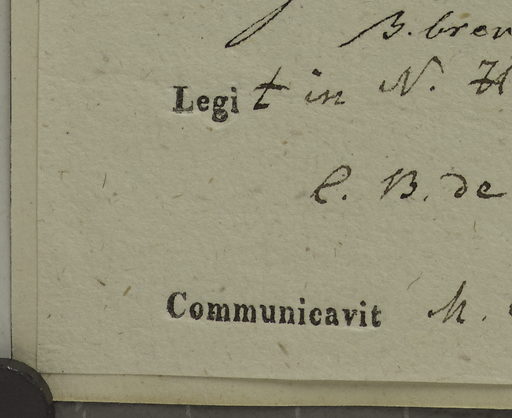 B. brev
Legit in N. H
C. B. de
Communicavit M.